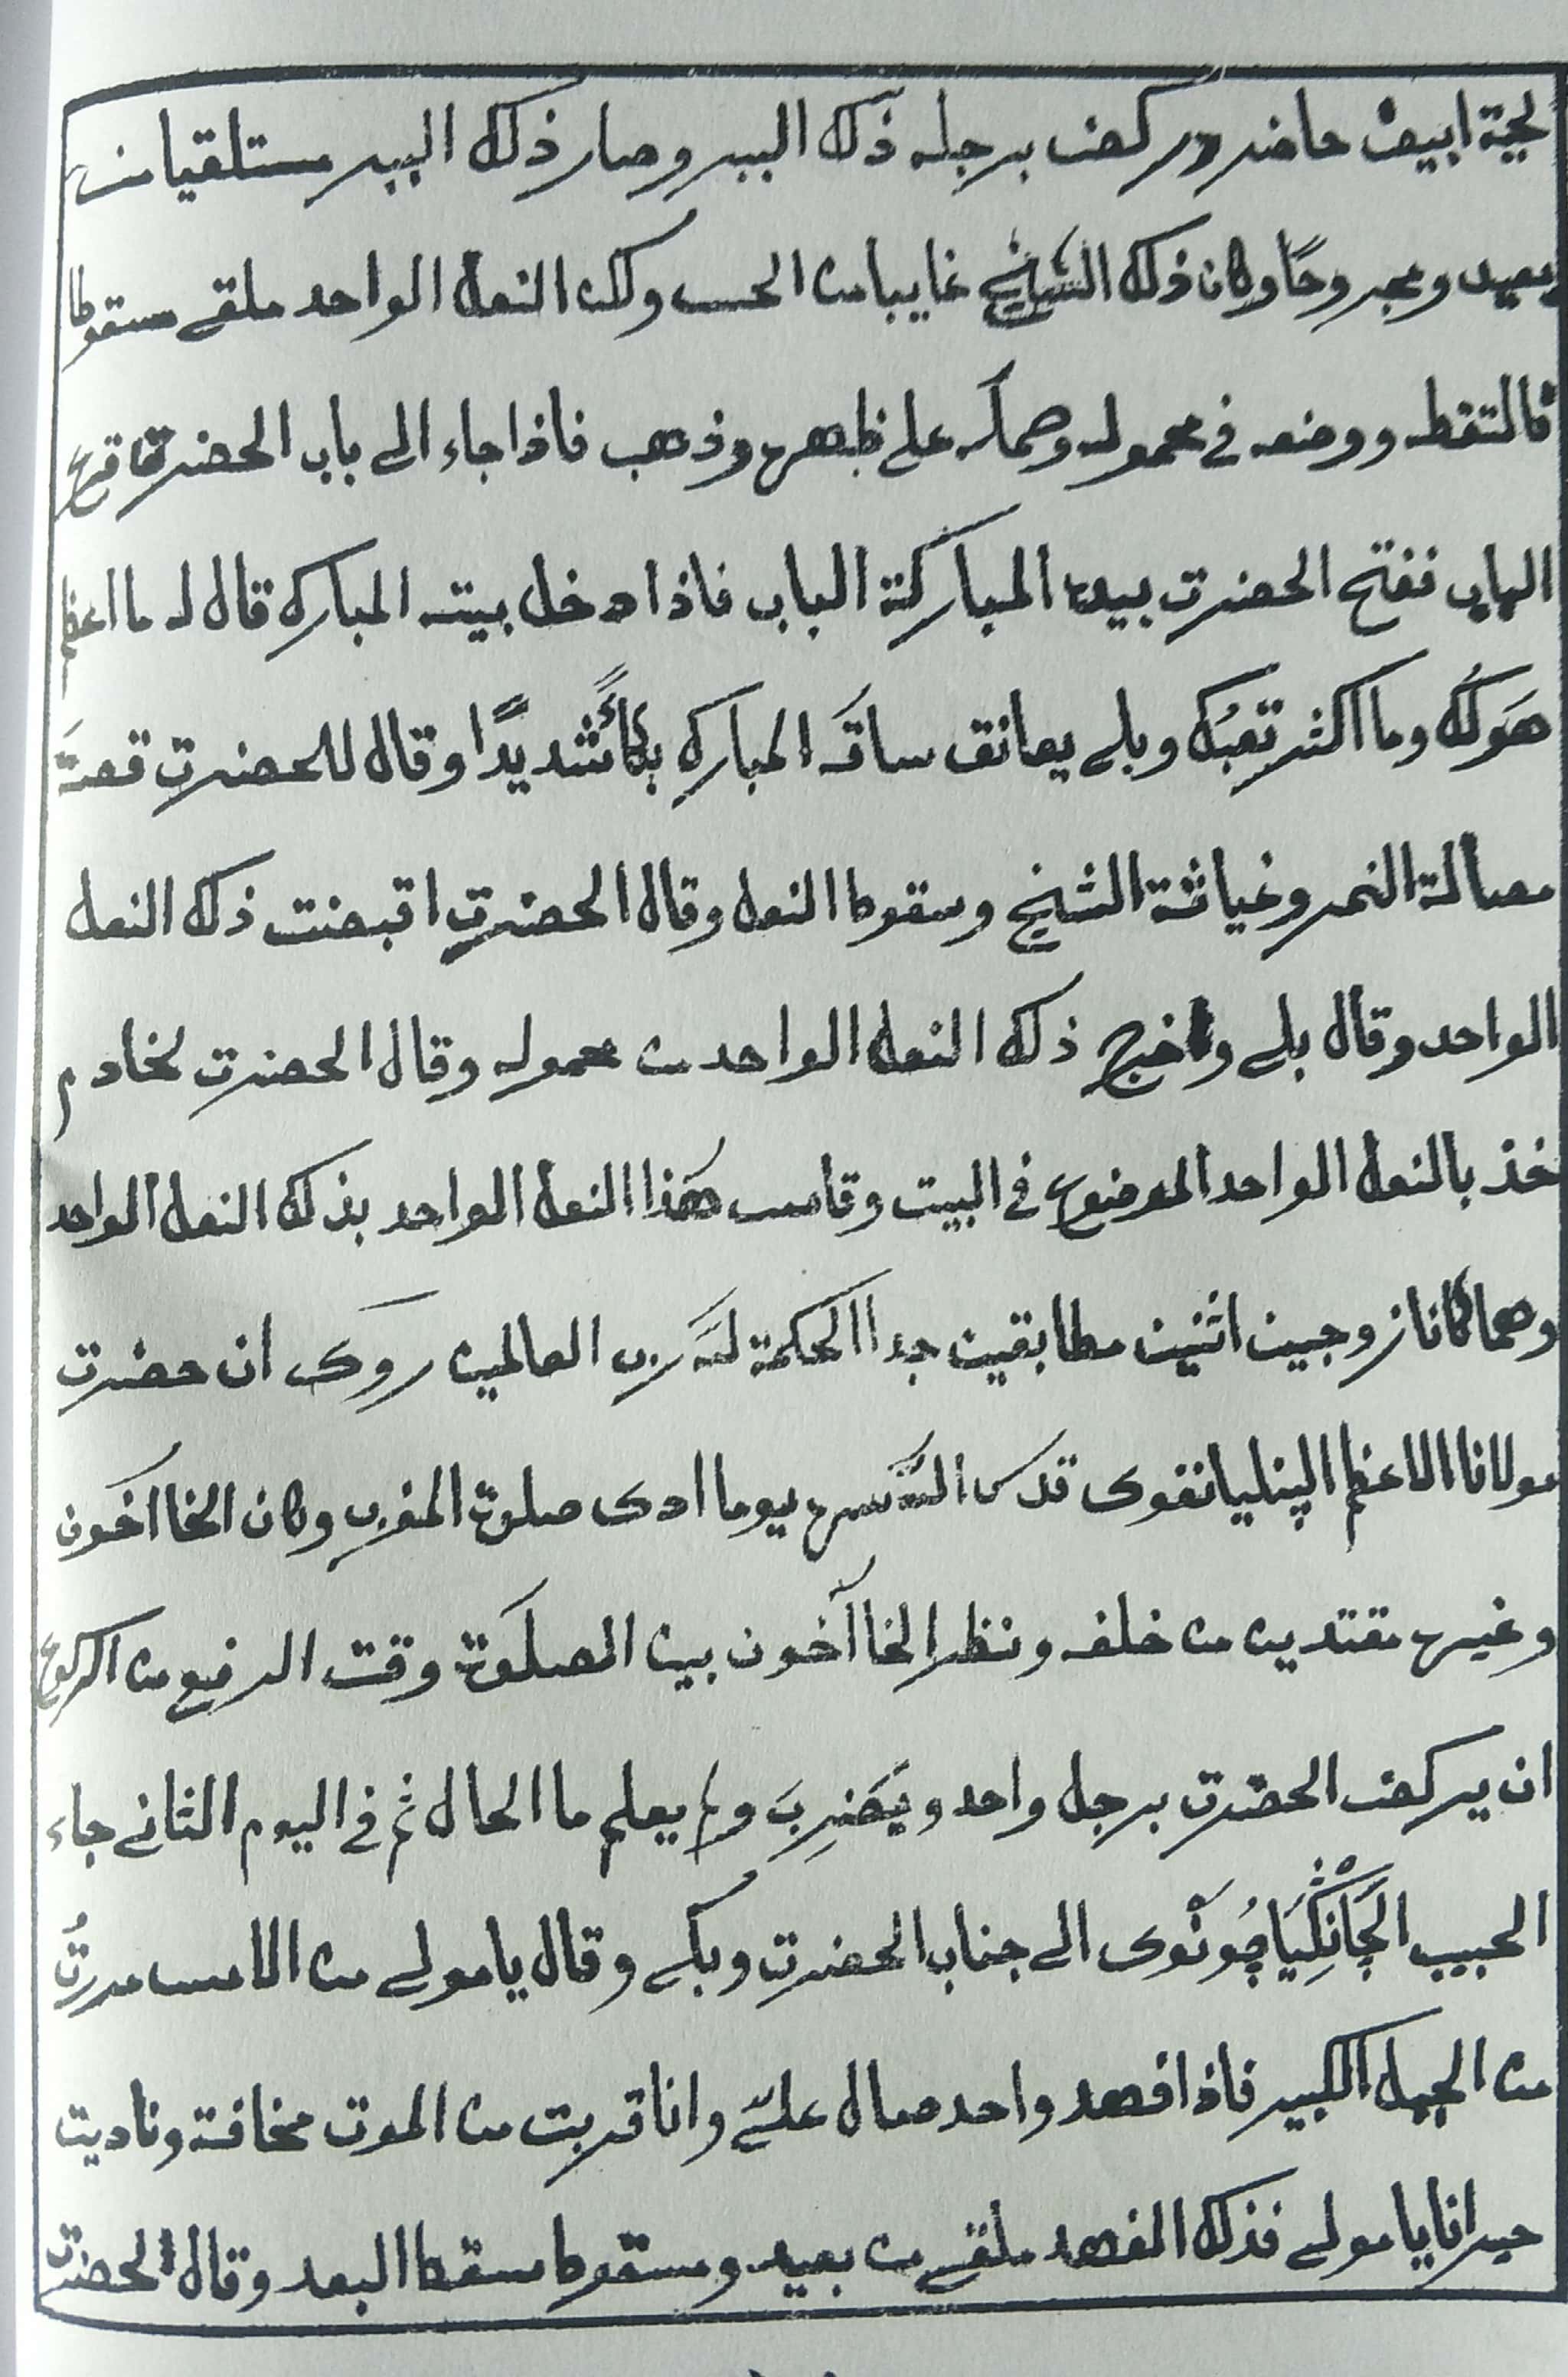 لحية ابيض حاضر وركض برجله ذلك الببر وصار ذلك الببر مستلقيا من
بعيد ومجروحًا وكان ذلك الشيخ غايبا من الحس ولكن النعل الواحد ملقى سقوطا
فالتقطه ووضعه في محموله وحمله على ظهره وذهب فاذا جاء الى باب الحضرة قرع
الباب ففتح الحضرت بيده المباركة الباب فاذا دخل بيته المبارك قال له ما اعظم
هَولُك وما اكثر تعبُك وبلى يعانق ساقَه المبارك بكاءً شديدًا وقال للحضرت قصةَ
مصالة النمر وغياثة الشيخ وسقوط النعل وقال الحضرت اقبضت ذلك النعل
الواحد وقال بلى واخرج ذلك النعل الواحد من محموله وقال الحضرت لخادم
خذ بالنعل الواحد الموضوع في البيت وقامس هذا النعل الواحد بذلك النعل الواحد
وهما كانا زوجين اثنين مطابقين جدا الحكمة لله رب العالمين روى ان حضرت
مولانا الاعظم الپنليانفوى قدس الله سره يوما ادى صلوة المغرب وكان الخا آخون
وغيره مقتدين من خلفه ونظر الخا آخون بين الصلَوة وقت الرفيع من الركوع
ان يركض الحضرت برجل واحد ويَضرِبَ ولم يعلم ما الحال ثم في اليوم الثاني جاء
الحبيب الجَانكِيَاچُونْوى الى جناب الحضرت وبكى وقال يا مولى من الامس مررتُ
من الجبل الكبير فاذا افهد واحد صال علىّ وانا قربت من الموت مخافة وناديت
حيرانا يا مولى فذلك الفهد ملقى من بعيد وسقوطا سقط البعد وقال الحضرت